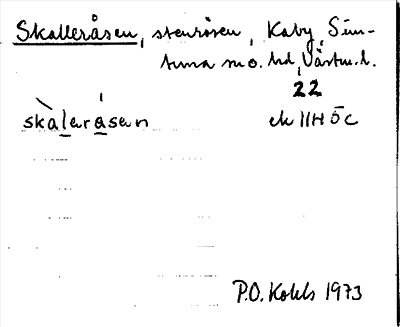 Skalleråsen, stenrösen, Kaby, Sim-
tuna sn o. hd, Västm. l.
22
skàlaråsan
ek 11H 5c
P.O. Kohls 1973